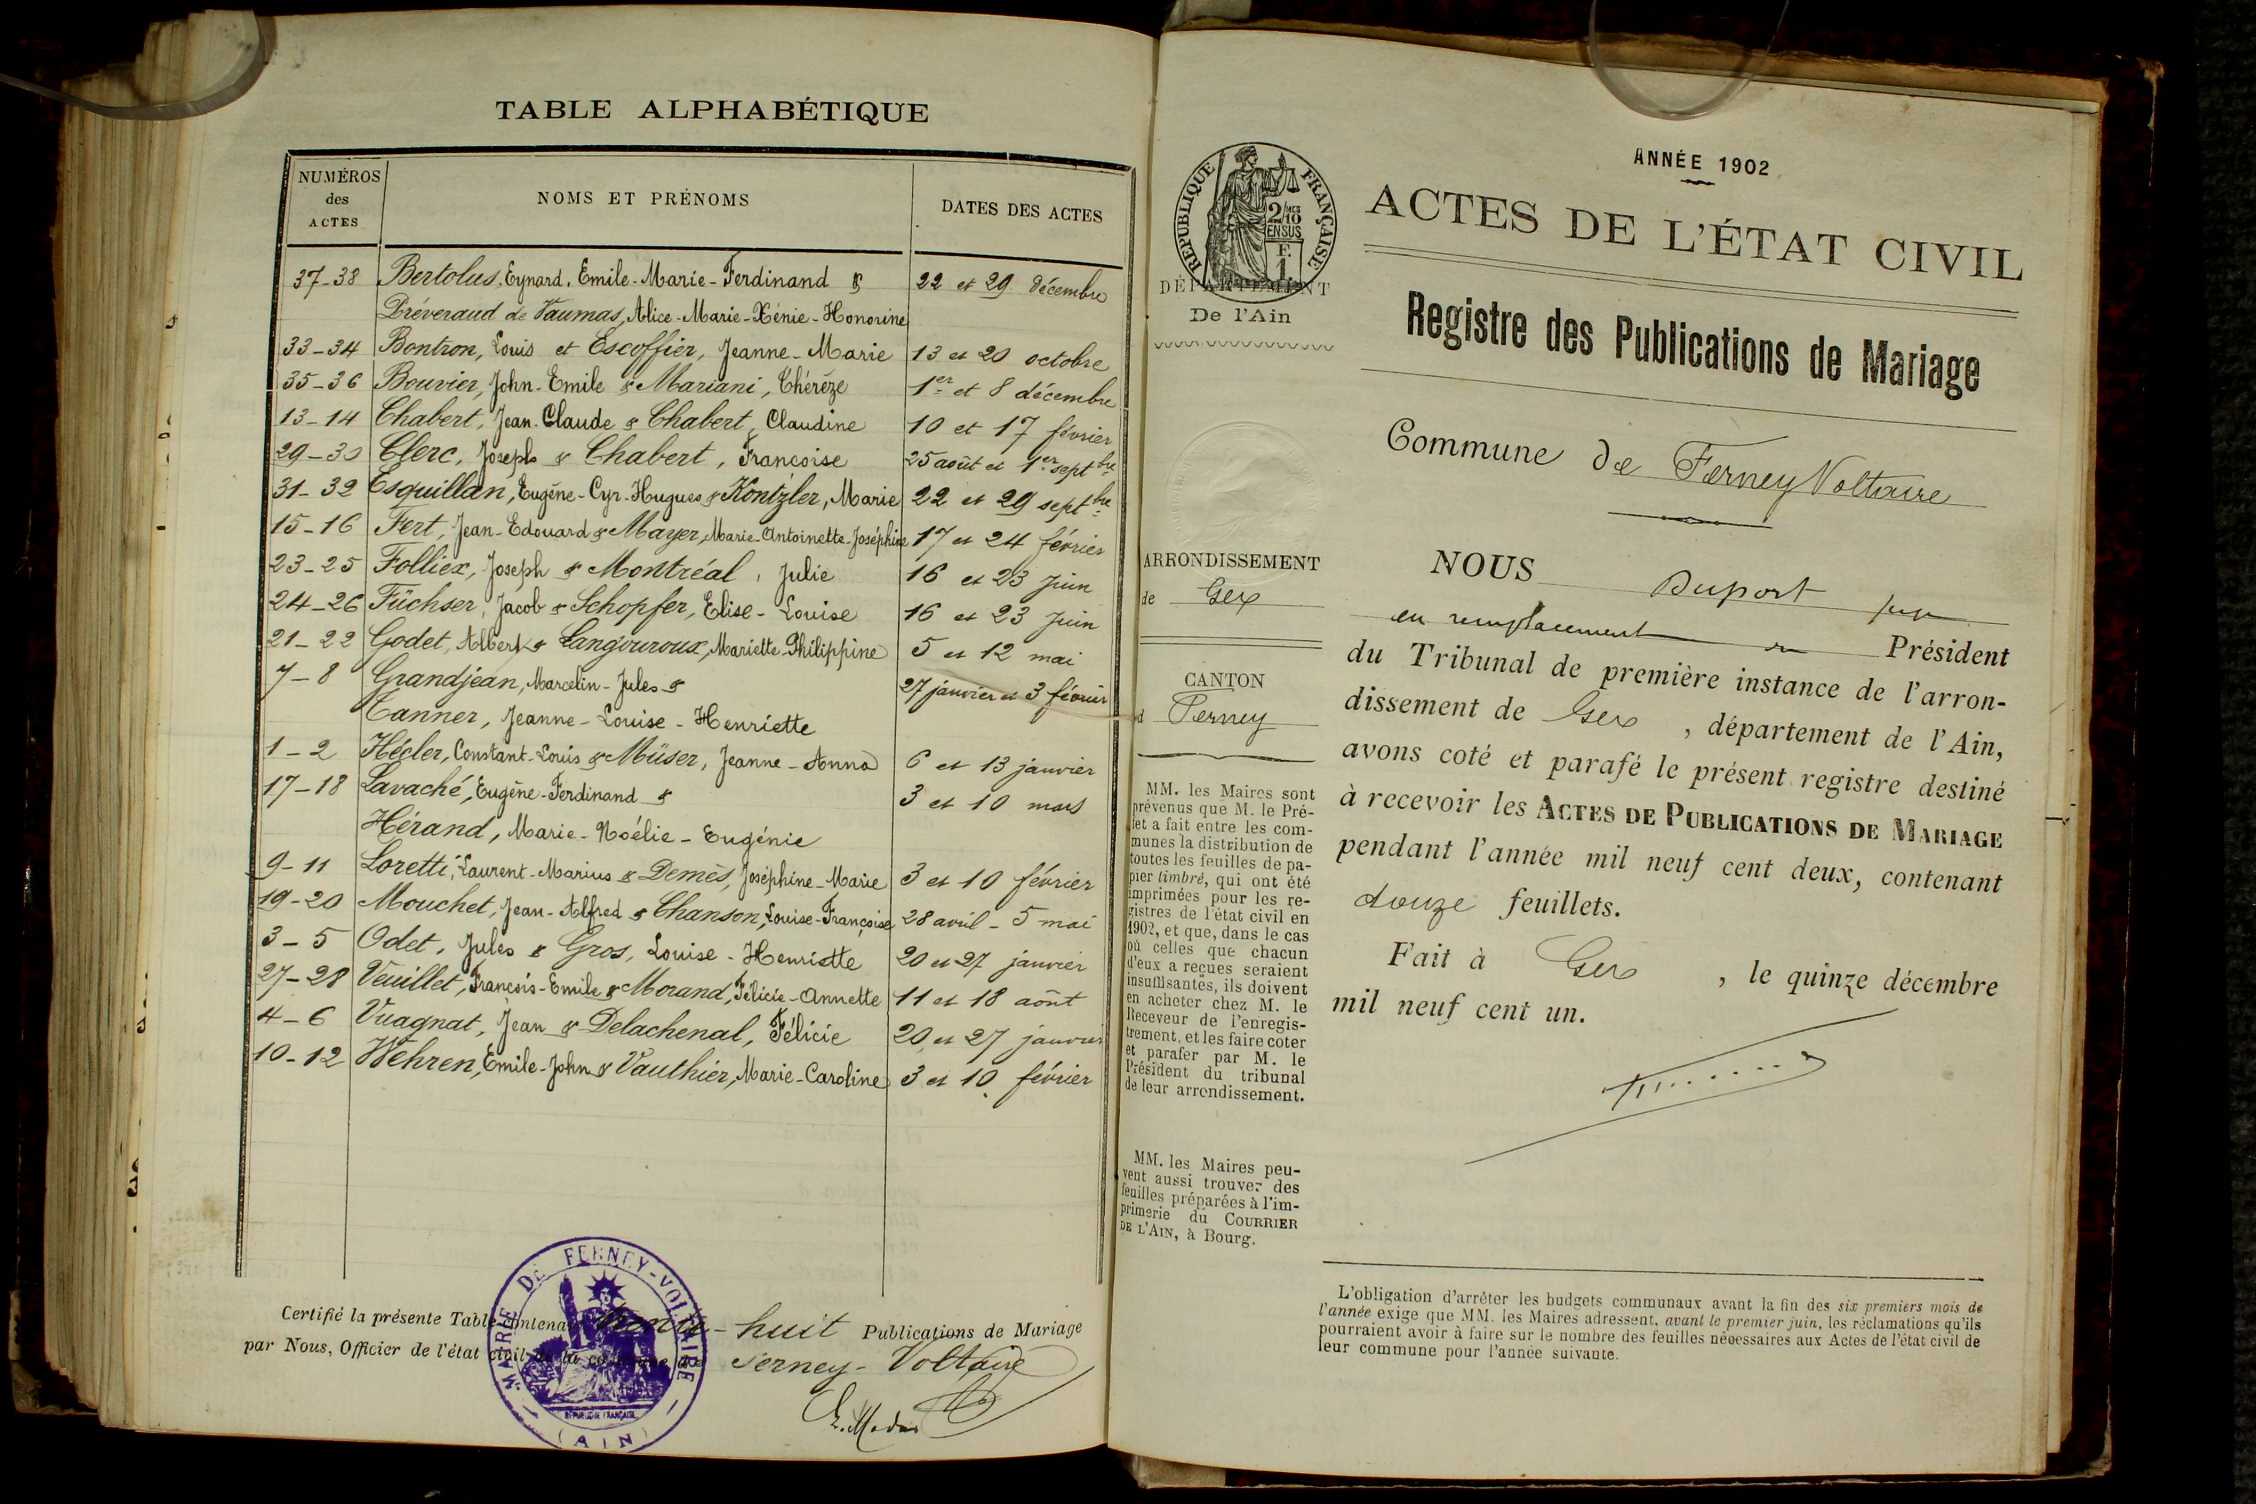 TABLE ALPHABÉTIQUE
NUMÉROS
des
ACTES
NOMS ET PRÉNOMS
DATES DES ACTES
37-38 Bertolus, Eynard, Emile-Marie-Ferdinand & 22 et 29 décembre
Préveraud de Vaumas, Alice-Marie-Xénie-Honorine
33-34 Bontron, Louis et Escoffier, Jeanne-Marie 13 et 20 octobre
35-36 Bouvier, John-Emile & Mariani, Thérèze 1er et 8 décembre
13-14 Chabert, Jean-Claude & Chabert, Claudine 10 et 17 février
29-30 Clerc, Joseph & Chabert, Françoise 25 août et 1er septbre
31-32 Esquillan, Eugène-Cyr-Hugues & Kontzler, Marie 22 et 29 septbre
15-16 Fert, Jean-Edouard & Mayer, Marie-Antoinette-Joséphine 17 et 24 février
23-25 Folliex, Joseph & Montréal, Julie 16 et 23 juin
24-26 Füchser, Jacob & Schopfer, Elise-Louise 16 et 23 juin
21-22 Godet, Albert & Langouroux, Mariette-Philippine 5 et 12 mai
7-8 Grandjean, Marcelin-Jules & 27 janvier et 3 février
Tanner, Jeanne-Louise-Henriette
1-2 Hécler, Constant-Louis & Müser, Jeanne-Anna 6 et 13 janvier
17-18 Lavaché, Eugène-Ferdinand & 3 et 10 mars
Hérand, Marie-Noélie-Eugénie
9-11 Loretti, Laurent-Marius & Demès, Joséphine-Marie 3 et 10 février
19-20 Mouchet, Jean-Alfred & Chanson, Louise-Françoise 28 avril - 5 mai
3-5 Odet, Jules & Gros, Louise-Henriette 20 et 27 janvier
27-28 Veuillet, François-Emile & Morand, Félicie-Annette 11 et 18 août
4-6 Vuagnat, Jean & Delachenal, Félicie 20 et 27 janvier
10-12 Wehren, Emile-John & Vauthier, Marie-Caroline 3 et 10 février
Certifié la présente Table contenant trente-huit Publications de Mariage
par Nous, Officier de l'état civil de la commune de Ferney-Voltaire
MAIRIE DE FERNEY-VOLTAIRE
RÉPUBLIQUE FRANÇAISE
(AIN)
RÉPUBLIQUE FRANÇAISE
2/10
EN SUS
F.
1
DÉPARTEMENT
De l'Ain
ARRONDISSEMENT
de Gex
CANTON
d Ferney
MM. les Maires sont
prévenus que M. le Pré-
fet a fait entre les com-
munes la distribution de
toutes les feuilles de pa-
pier timbré, qui ont été
imprimées pour les re-
gistres de l'état civil en
1902, et que, dans le cas
où celles que chacun
d'eux a reçues seraient
insuffisantes, ils doivent
en acheter chez M. le
Receveur de l'enregis-
trement, et les faire coter
et parafer par M. le
Président du tribunal
de leur arrondissement.
MM. les Maires peu-
vent aussi trouver des
feuilles préparées à l'im-
primerie du COURRIER
DE L'AIN, à Bourg.
ANNÉE 1902
ACTES DE L'ÉTAT CIVIL
Registre des Publications de Mariage
Commune de Ferney Voltaire
NOUS Duport juge
en remplacement du Président
du Tribunal de première instance de l'arron-
dissement de Gex, département de l'Ain,
avons coté et parafé le présent registre destiné
à recevoir les ACTES DE PUBLICATIONS DE MARIAGE
pendant l'année mil neuf cent deux, contenant
douze feuillets.
Fait à Gex, le quinze décembre
mil neuf cent un.
L'obligation d'arrêter les budgets communaux avant la fin des six premiers mois de
l'année exige que MM. les Maires adressent, avant le premier juin, les réclamations qu'ils
pourraient avoir à faire sur le nombre des feuilles nécessaires aux Actes de l'état civil de
leur commune pour l'année suivante.